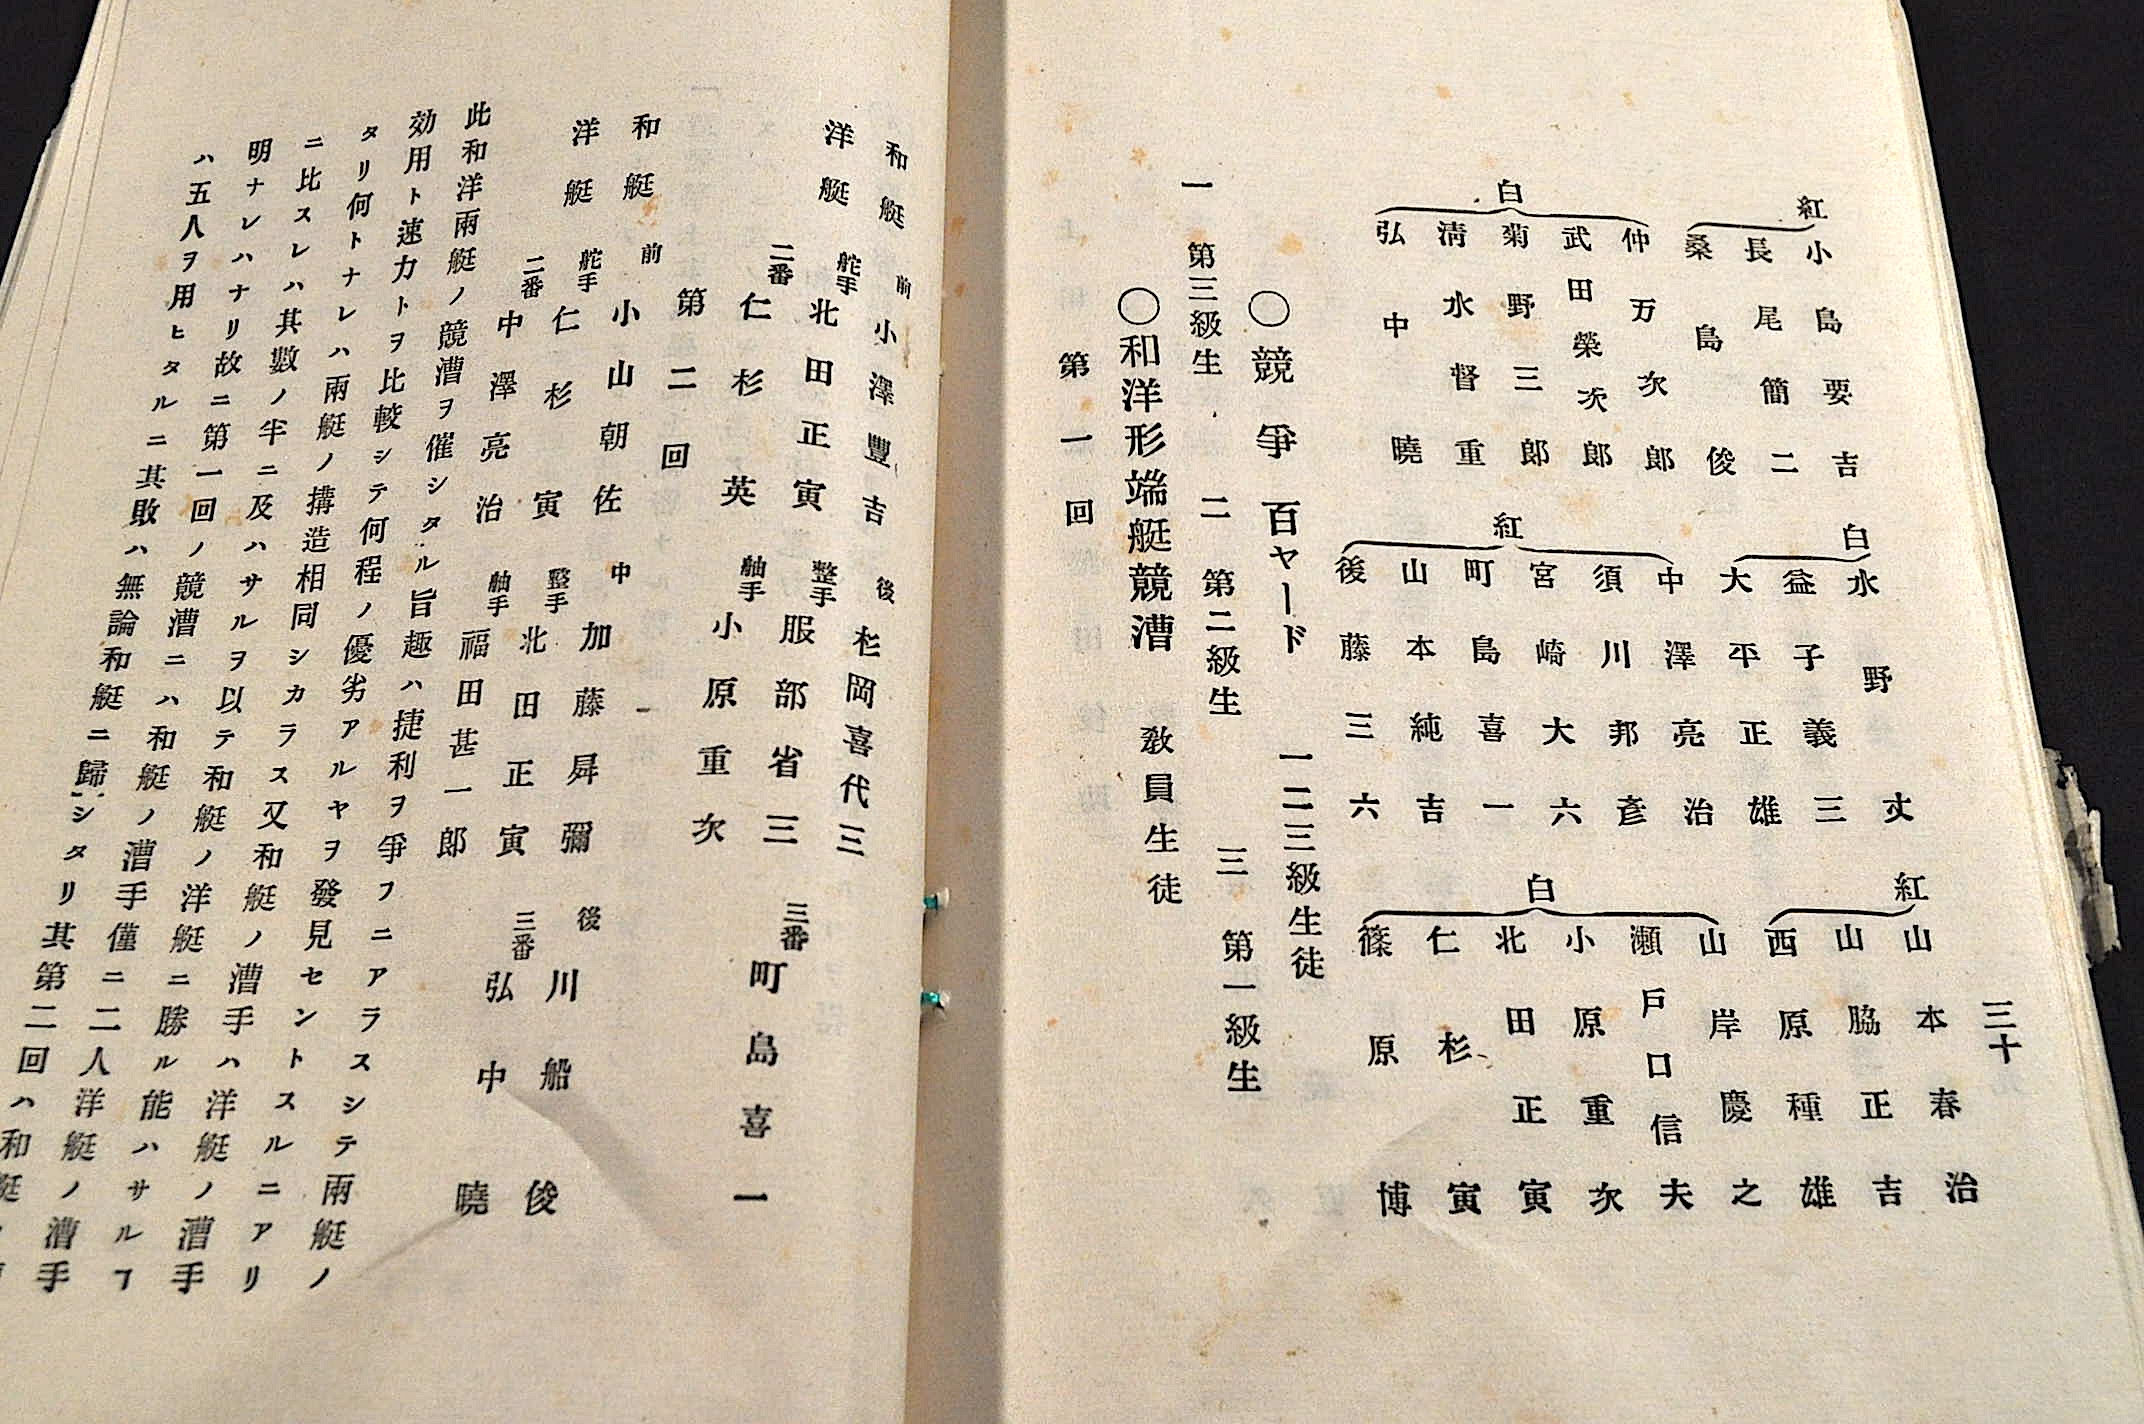 三十
紅
小島要吉
長尾簡二
桑島俊
白
仲万次郎
武田榮次郎
菊野三郎
清水督重
弘中曉
白
水野丈
益子義三
大平正雄
紅
中澤亮治
須川邦彥
宮崎大六
町島喜一
山本純吉
後藤三六
紅
山本春治
山脇正吉
西原種雄
白
山岸慶之
瀬戸口信夫
小原重次
北田正寅
仁杉寅
篠原博
〇競爭 百ヤード 一二三級生徒
一 第三級生 二 第二級生 三 第一級生
〇和洋形端艇競漕 教員生徒
第一回
和艇 前 小澤豐吉 後 杉岡喜代三
洋艇 舵手 北田正寅 整手 服部省三 三番 町島喜一
二番 仁杉英 舳手 小原重次
第二回
和艇 前 小山朝佐 中 加藤昇彌 後 川船俊
洋艇 舵手 仁杉寅 整手 北田正寅 三番 弘中曉
二番 中澤亮治 舳手 福田甚一郎
此和洋兩艇ノ競漕ヲ催シタル旨趣ハ捷利ヲ爭フニアラスシテ兩艇ノ
効用ト速力トヲ比較シテ何程ノ優劣アルヤヲ發見セントスルニアリ
タリ何トナレハ兩艇ノ搆造相同シカラス又和艇ノ漕手ハ洋艇ノ漕手
ニ比スレハ其數ノ半ニ及ハサルヲ以テ和艇ノ洋艇ニ勝ル能ハサルヿ
明ナレハナリ故ニ第一回ノ競漕ニハ和艇ノ漕手僅ニ二人洋艇ノ漕手
ハ五人ヲ用ヒタルニ其敗ハ無論和艇ニ歸シタリ其第二回ハ和艇